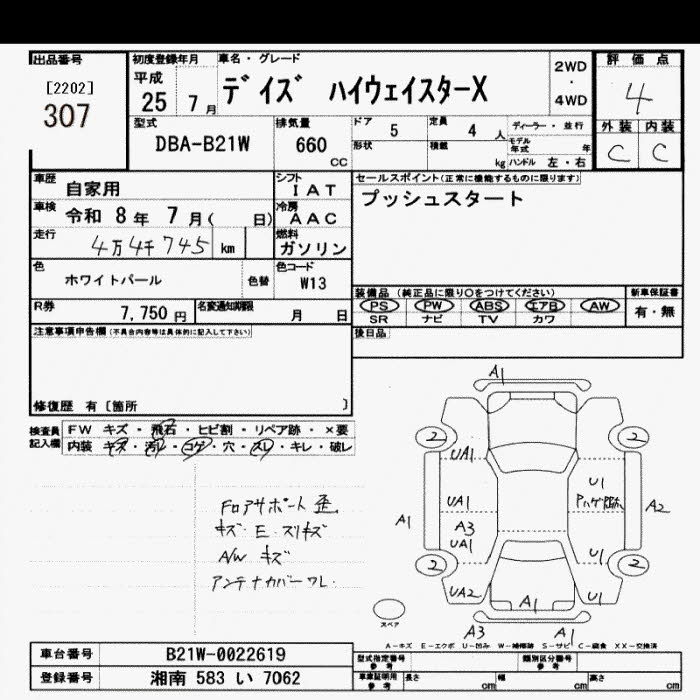 出品番号
[2202]
307
初度登録年月
平成
25 7 月
車名・グレード
デイズ ハイウェイスターX
2WD
・
4WD
評価点
4
外装 内装
C C
型式
DBA-B21W
排気量
660
CC
ドア 5
定員 4 人
ディーラー・並行
形状
積載
kg
モデル年式 年
ハンドル 左・右
車歴
自家用
シフト
IAT
車検
令和 8 年 7 月( 日)
冷房
AAC
走行
4万4千745 km
燃料
ガソリン
色
ホワイトパール
色替
色コード
W13
R券
7,750 円
名変通知期限
月 日
セールスポイント(正常に機能するものに限ります)
プッシュスタート
装備品 (純正品に限り○をつけてください)
PS PW ABS エアB AW
SR ナビ TV カワ
新車保証書
有・無
後日品
注意事項申告欄(不具合内容等は具体的に記入して下さい)
修復歴 有〔箇所 〕
検査員記入欄
FW キズ・飛石・ヒビ割・リペア跡・×要
内装 キズ・汚レ・コゲ・穴・スレ・キレ・破レ
Fロアサポート歪
キズ・E・スリキズ
A/W キズ
アンテナカバーワレ
A1
2 2
UA1
U1
UA1
Pハゲ跡
A1
A3
A2
UA1
U1
2 2
UA2
A1
U1
スペア
A3 A1
A-キズ E-エクボ U-凹み W-補修跡 S-サビ C-腐食 XX-交換済
車台番号
B21W-0022619
登録番号
湘南 583 い 7062
型式指定番号
参考
類別区分番号
参考
車庫証明用
参考
長さ cm
幅 cm
高さ cm